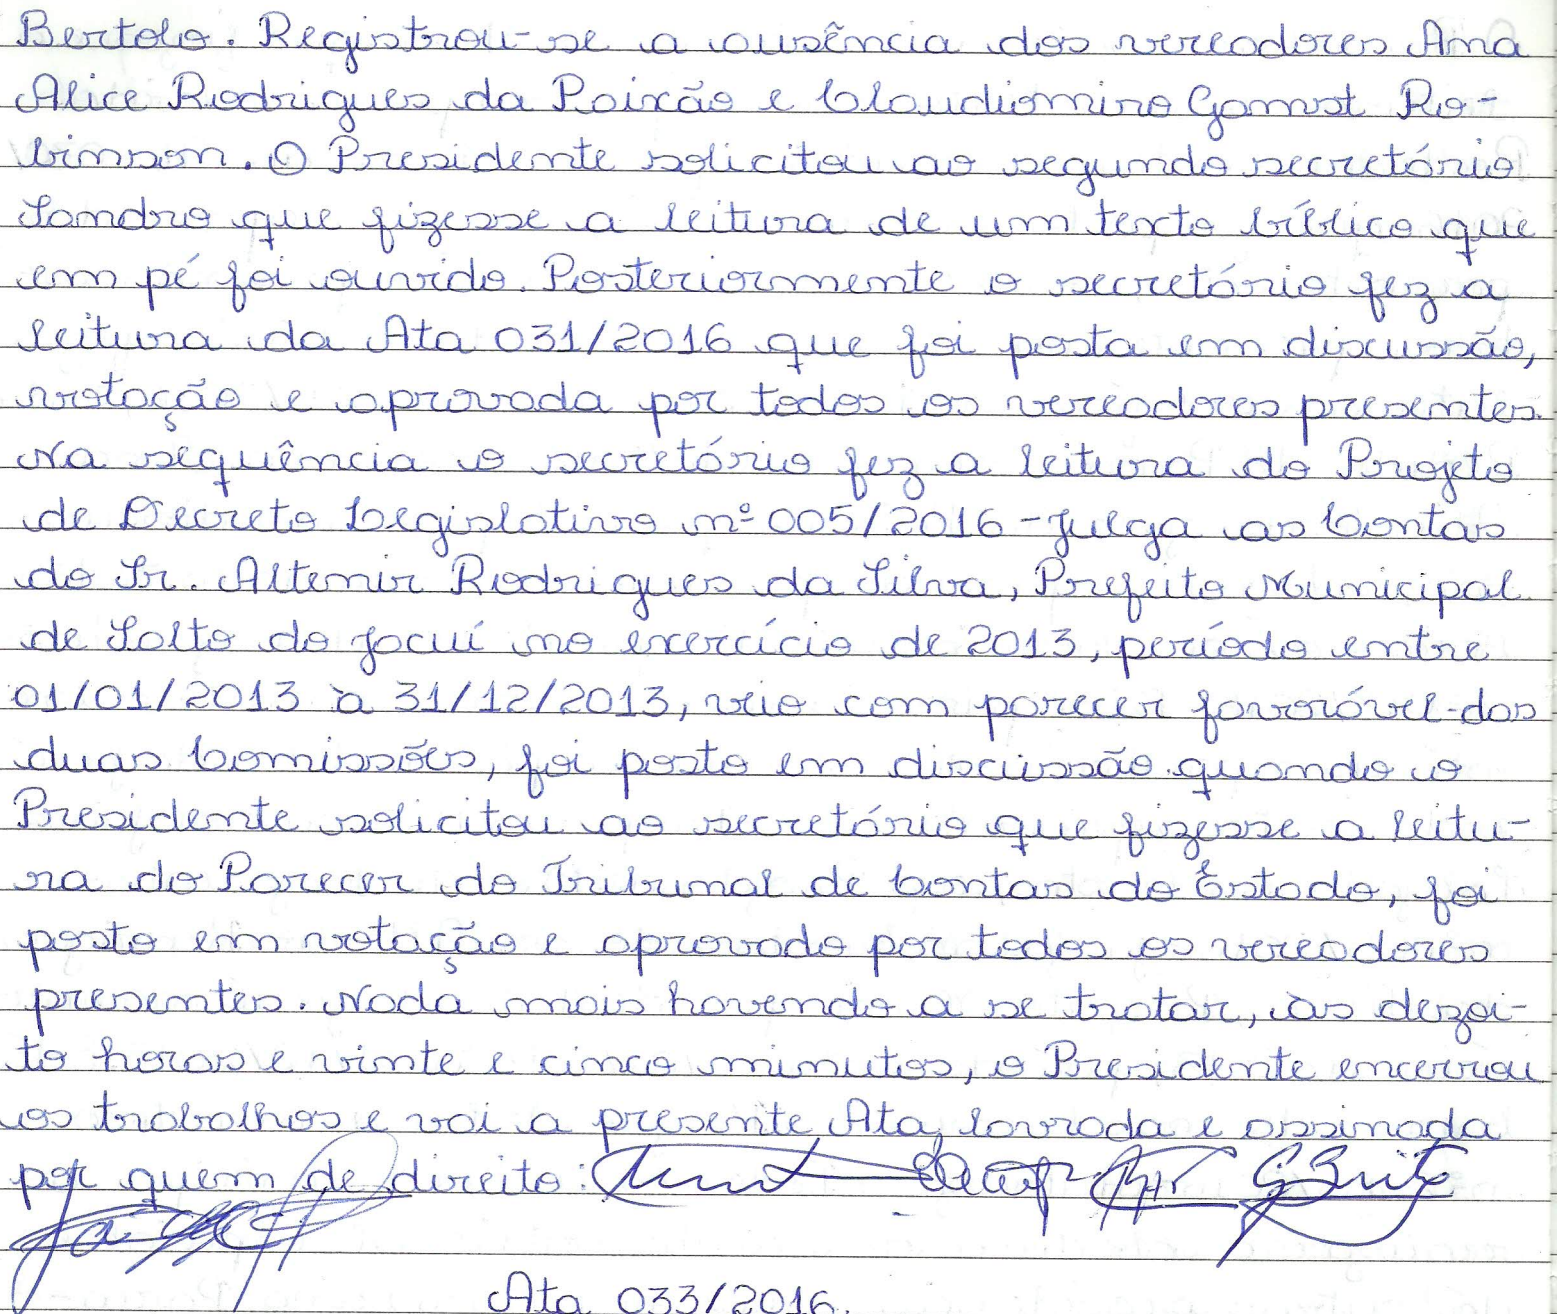 Bertolo. Registrou-se a ausência dos vereadores Ana
Alice Rodrigues da Paixão e Claudiomiro Gamst Ro-
binson. O Presidente solicitou ao segundo secretário
Sandro que fizesse a leitura de um texto bíblico que
em pé foi ouvido. Posteriormente o secretário fez a
leitura da Ata 031/2016 que foi posta em discussão,
votação e aprovada por todos os vereadores presentes.
Na sequência o secretário fez a leitura do Projeto
de Decreto Legislativo nº 005/2016 - Julga as Contas
do Sr. Altenir Rodrigues da Silva, Prefeito Municipal
de Salto do Jacuí no exercício de 2013, período entre
01/01/2013 à 31/12/2013, veio com parecer favorável das
duas Comissões, foi posto em discussão quando o
Presidente solicitou ao secretário que fizesse a leitu-
ra do Parecer do Tribunal de Contas do Estado, foi
posto em votação e aprovado por todos os vereadores
presentes. Nada mais havendo a se tratar, às dezoi-
to horas e vinte e cinco minutos, o Presidente encerrou
os trabalhos e vai a presente Ata, lavrada e assinada
por quem de direito: G Brito
Ata 033/2016.